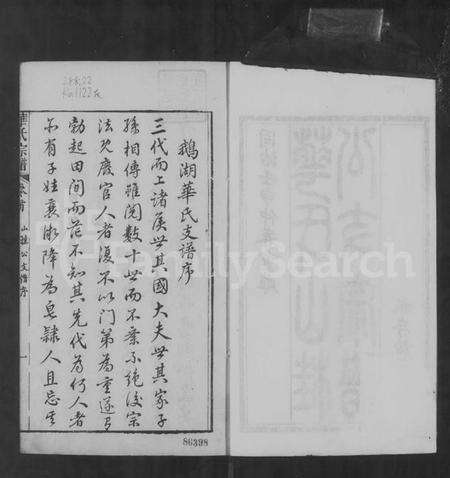 鵝湖華氏支譜序
三代而上諸侯世其國大夫世其家子
孫相傳雖閱數十世而不棄不絕後宗
法既廢官人者復不以門第為重遂有
勃起田間而茫不知其先代為何人者
亦有子姓衰微降為皂隸人且忘其
華氏宗譜 卷首 山桂公支譜序 一
86398
FamilySearch